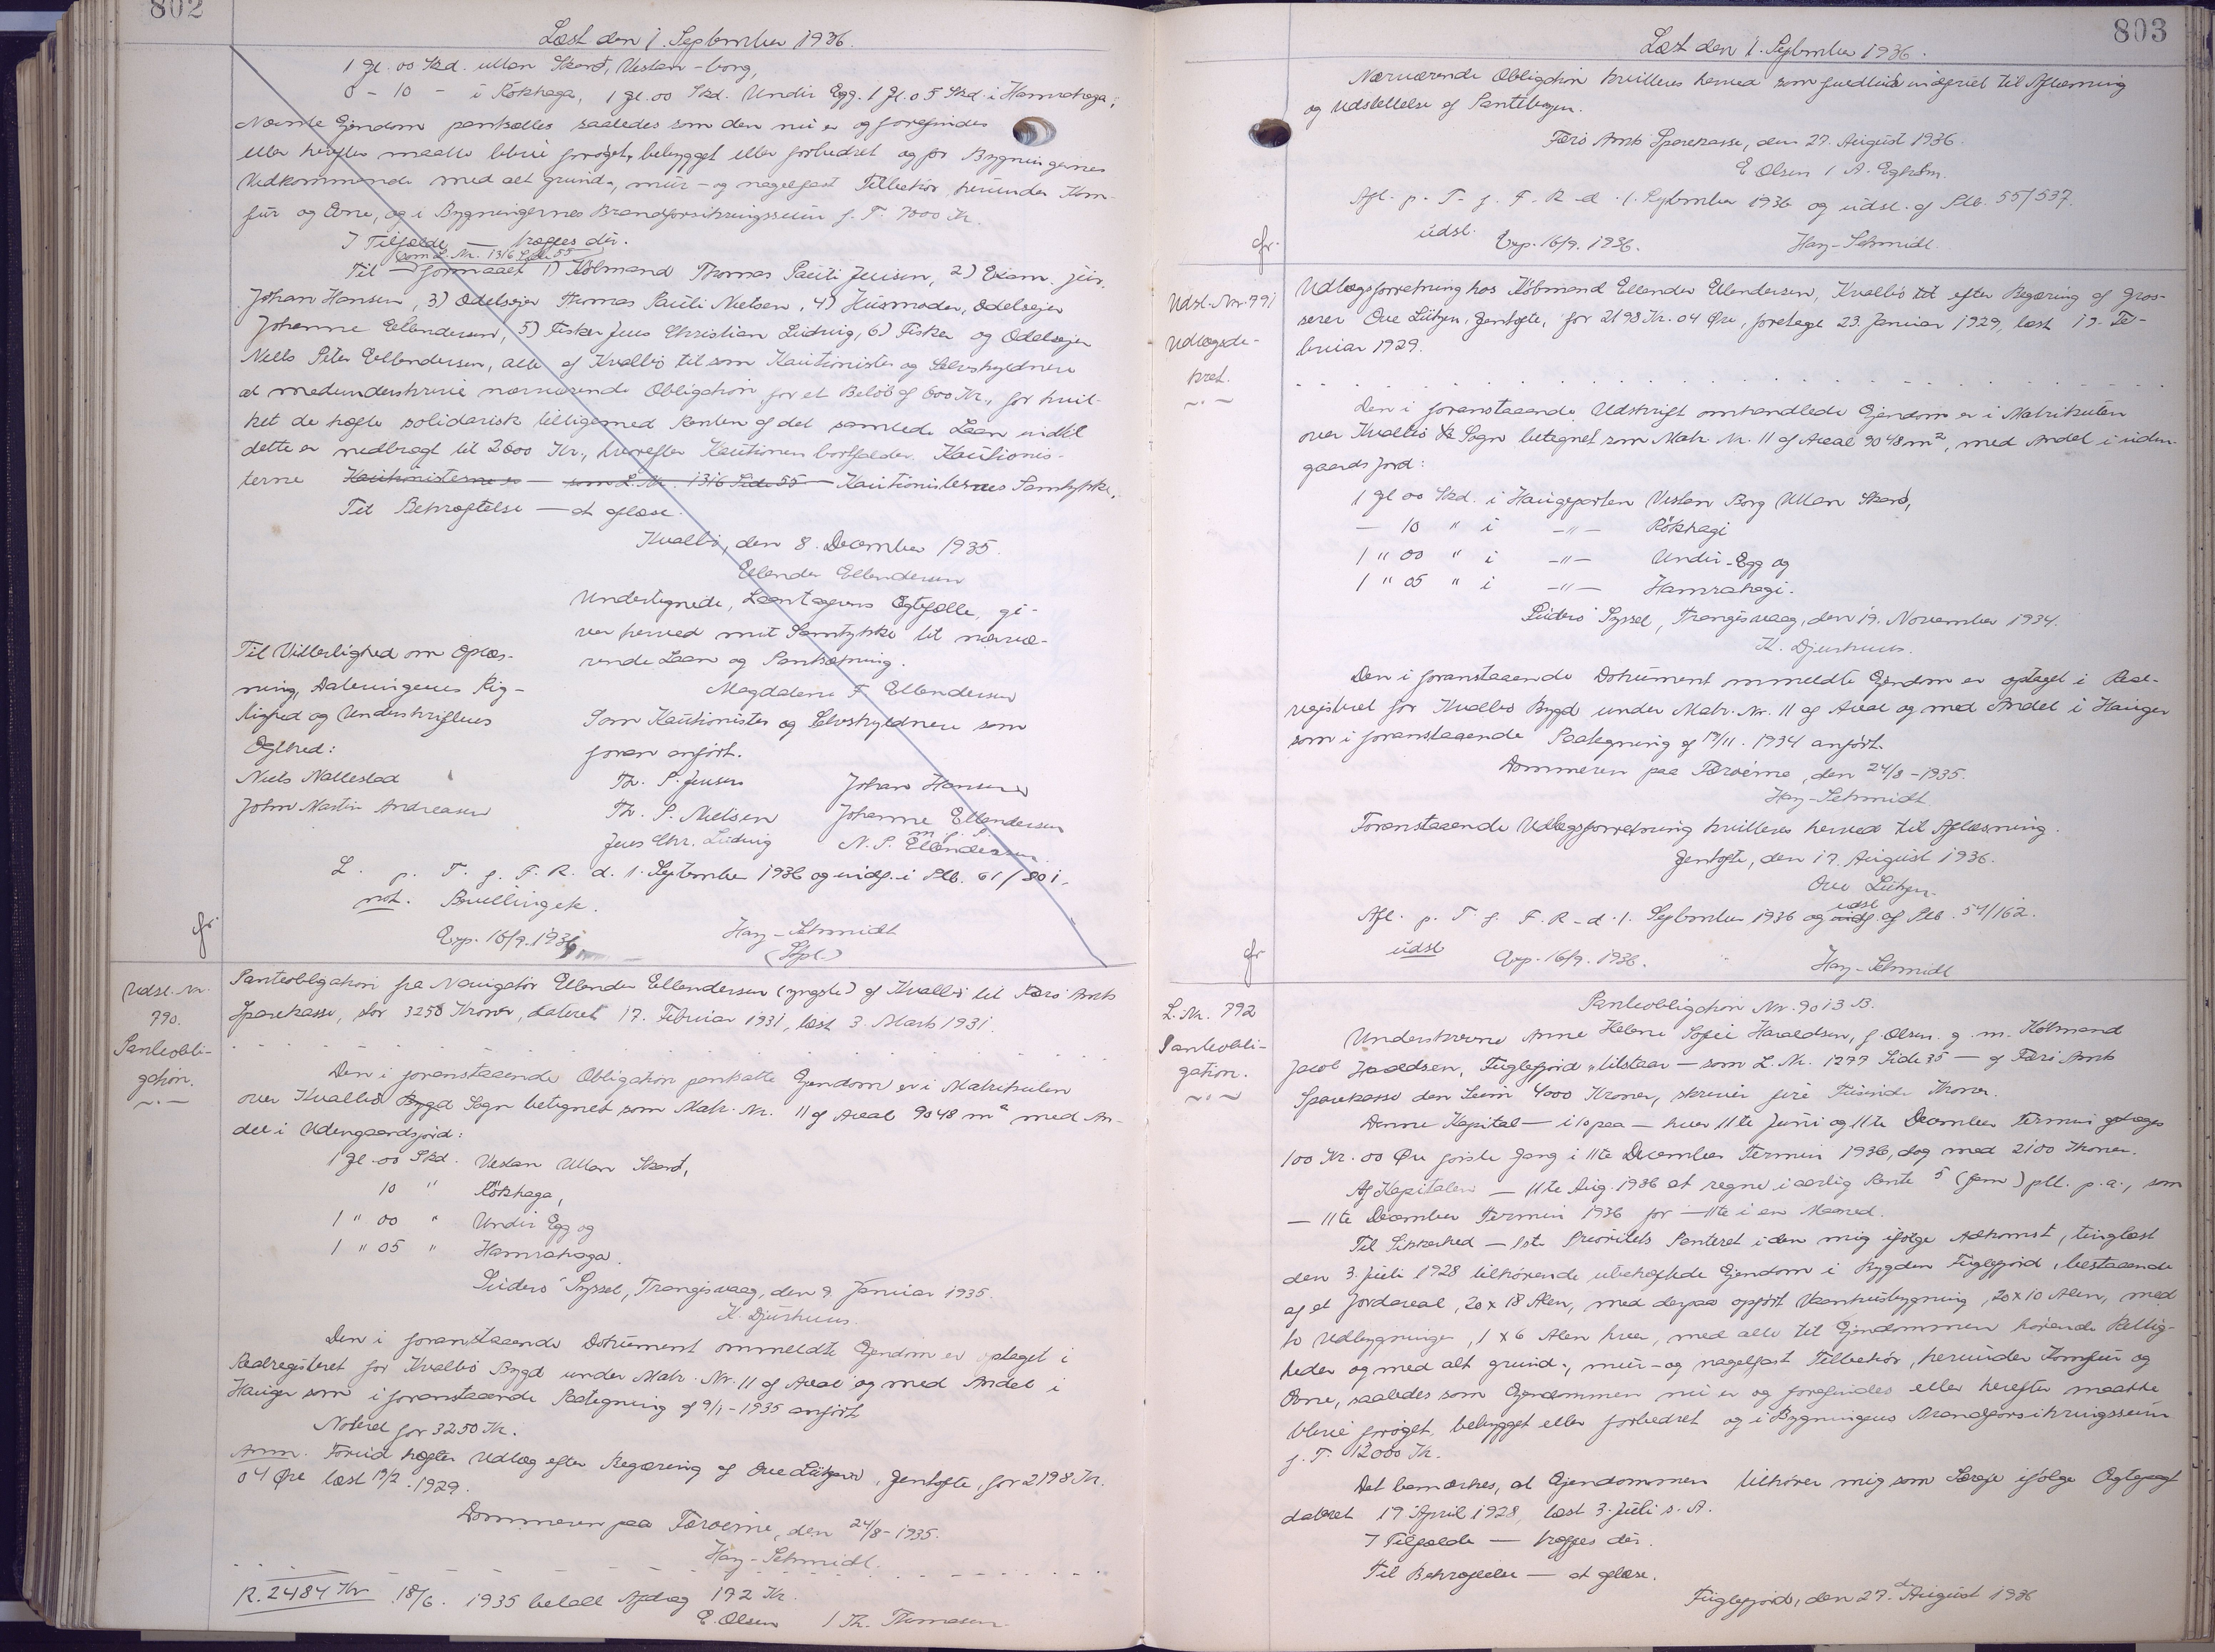 802
Læst den 1. September 1936.
1 Gl. 00 Skd. uttan Skarð, Vestan-borg,
0 - 10 - i Kökhaga, 1 Gl. 00 Skd. Undir Egg. 1 Gl. 05 Skd. i Hamrahaga;
Nævnte Ejendom pantsættes saaledes som den nu er og forefindes
eller herefter maatte blive forøget, bebygget eller forbedret og for Bygningernes
Vedkommende med alt grund-, mur- og nagelfast Tilbehør, herunder Kom-
fur og Ovne, og i Bygningernes Brandforsikringssum f. T. 7000 Kr.
I Tilfælde — træffes dér.
som L. Nr. 1316 Side 55
Til — formaaet 1) Købmand Thomas Pauli Jensen, 2) Exam. jur.
Johan Hansen, 3) Odelsejer Thomas Pauli Nielsen, 4) Husmoder, Odelsejer
Johanne Ellendersen, 5) Fisker Jens Christian Ludvig, 6) Fisker og Odelsejer
Niels Peter Ellendersen, alle af Kvalbø til som Kautionister og Selvskyldnere
at medunderskrive nærværende Obligation for et Beløb af 600 Kr., for hvil-
ket de hæfte solidarisk tilligemed Renten af det samlede Laan indtil
dette er nedbragt til 2600 Kr., hvorefter Kautionen bortfalder. Kautionis-
terne Kautionisterne — som L. Nr. 1316 Side 55 — Kautionisternes Samtykke.
Til Bekræftelse — at aflæse.
Kvalbø, den 8. December 1935.
Ellender Ellendersen
Undertegnede, Laantagerens Ægtefælle, gi-
ver herved mit Samtykke til nærvæ-
rende Laan og Pantsætning.
Magdalene F Ellendersen
Som Kautionister og Selvskyldnere som
foran anført.
Til Vitterlighed om Oplæs-
ning, Dateringens Rig-
tighed og Underskrifternes
Ægthed:
Niels Nallestad
John Martin Andreasen
Th. P. Jensen Johan Hansen
Th. P. Nielsen Johanne Ellendersen
m. f. P.
Jens Chr. Ludvig N. P. Ellendersen
L. p. T. f. F. R. d. 1. September 1936 og indf. i Plb. 61/801.
not. Bevillingek.
fr
Exp. 16/9.1936 Hay-Schmidt
(Stpl.)
Udsl. Nr.
790.
Panteobli-
gation.
Panteobligation fra Navigatør Ellender Ellendersen (yngste) af Kvalbø til Færø Amts
Sparekasse, stor 3250 Kroner, dateret 17. Februar 1931, læst 3. Marts 1931.
Den i foranstaaende Obligation pantsatte Ejendom er i Matrikulen
over Kvalbø Bygd Sogn betegnet som Matr. Nr. 11 af Areal 9048 m² med An-
del i Udengaardsjord:
1 Gl. 00 Skd. Vestan Uttan Skarð,
10 " Kökhaga,
1 " 00 " Undir Egg og
1 " 05 " Hamrahaga.
Suderø Syssel, Trangisvaag, den 9. Januar 1935.
K. Djurhuus.
Den i foranstaaende Dokument ommeldte Ejendom er optaget i
Realregistret for Kvalbø Bygd under Matr. Nr. 11 af Areal og med Andel i
Hauger som i foranstaaende Paategning af 9/1-1935 anført
Noteret for 3250 Kr.
Anm. Forud hæfter Udlæg efter Begæring af Ove Lützen, Gentofte, for 2198 Kr.
04 Øre læst 19/2.1929.
Dommeren paa Færøerne, den 24/8-1935.
Hay-Schmidt.
R. 2484 Kr 18/6. 1935 betalt Afdrag 192 Kr.
E. Olsen / Th. Thomasen
803
Læst den 1. September 1936.
Nærværende Obligation kvitteres herved som fuldtud indfriet til Aflæsning
og Udslettelse af Pantebogen.
Færø Amts Sparekasse, den 27. August 1936.
E Olsen / A. Egholm.
Afl. p. T. f. F. R. d. 1. September 1936 og udsl. af Plb. 55/537.
udsl.
fr. Exp. 16/9. 1936. Hay-Schmidt.
Udsl. Nr. 791
Udlægsde-
kret.
Udlægsforretning hos Købmand Ellender Ellendersen, Kvalbø til efter Begæring af Gros-
serer Ove Lützen, Gentofte, for 2198 Kr. 04 Øre, foretaget 23. Januar 1929, læst 19. Fe-
bruar 1929.
Den i foranstaaende Udskrift omhandlede Ejendom er i Matrikulen
over Kvalbø Sogn betegnet som Matr. Nr. 11 af Areal 9048 m², med Andel i uden-
gaards Jord:
1 Gl 00 Skd. i Haugeparten Vestan Borg Uttan Skarð,
— 10 " i —"— Kökhagi
1 " 00 " i —"— Undir-Egg og
1 " 05 " i —"— Hamrahagi.
Suderø Syssel, Trangisvaag, den 19. November 1934.
K. Djurhuus.
Den i foranstaaende Dokument ommeldte Ejendom er optaget i Real-
registret for Kvalbø Bygd under Matr. Nr. 11 af Areal og med Andel i Hauger
som i foranstaaende Paategning af 19/11. 1934 anført.
Dommeren paa Færøerne, den 24/8-1935.
Hay-Schmidt.
Foranstaaende Udlægsforretning kvitteres herved til Aflæsning.
Gentofte, den 17. August 1936.
Ove Lützen.
Afl. p. T. f. F. R. d. 1. September 1936 og indf. udsl af Plb. 54/162.
udsl
fr Exp. 16/9. 1936. Hay-Schmidt
L. Nr. 792
Panteobli-
gation.
Panteobligation Nr. 9013 B.
Underskrevne Anne Helene Sofie Haraldsen, f. Olsen g. m. Købmand
Jacob Haraldsen, Fuglefjord, tilstaar — som L. Nr. 1277 Side 35 — af Færø Amts
Sparekasse den Sum 4000 Kroner, skriver fire Tusinde Kroner.
Denne Kapital — i 10 paa — hver 11te Juni og 11te December Termin
100 Kr. 00 Øre første Gang i 11te December Termin 1936, dog med 2100 Kroner.
Af Kapitalen — 11te Aug. 1936 at regne i aarlig Rente 5 (fem) pCt. p. a., som
— 11te December Termin 1936 for — 11te i en Maaned.
Til Sikkerhed — 1ste Prioritets Panteret i den mig ifølge Adkomst, tinglæst
den 3. Juli 1928 tilhørende ubehæftede Ejendom i Bygden Fuglefjord, bestaaende
af et Jordareal, 20 x 18 Alen, med derpaa opført Vaanhusbygning, 20 x 10 Alen, med
to Udbygninger, 1 x 6 Alen hver, med alle til Ejendommen hørende Rettig-
heder og med alt grund-, mur- og nagelfast Tilbehør, herunder Komfur og
Ovne, saaledes som Ejendommen nu er og forefindes eller herefter maatte
blive forøget, bebygget eller forbedret og i Bygningens Brandforsikringssum
f. T. 12000 Kr.
Det bemærkes, at Ejendommen tilhører mig som Særeje ifølge Ægtepagt
dateret 17 April 1928, læst 3. Juli s. A.
I Tilfælde — træffes dér.
Til Bekræftelse — at aflæse.
Fuglefjord, den 27. August 1936